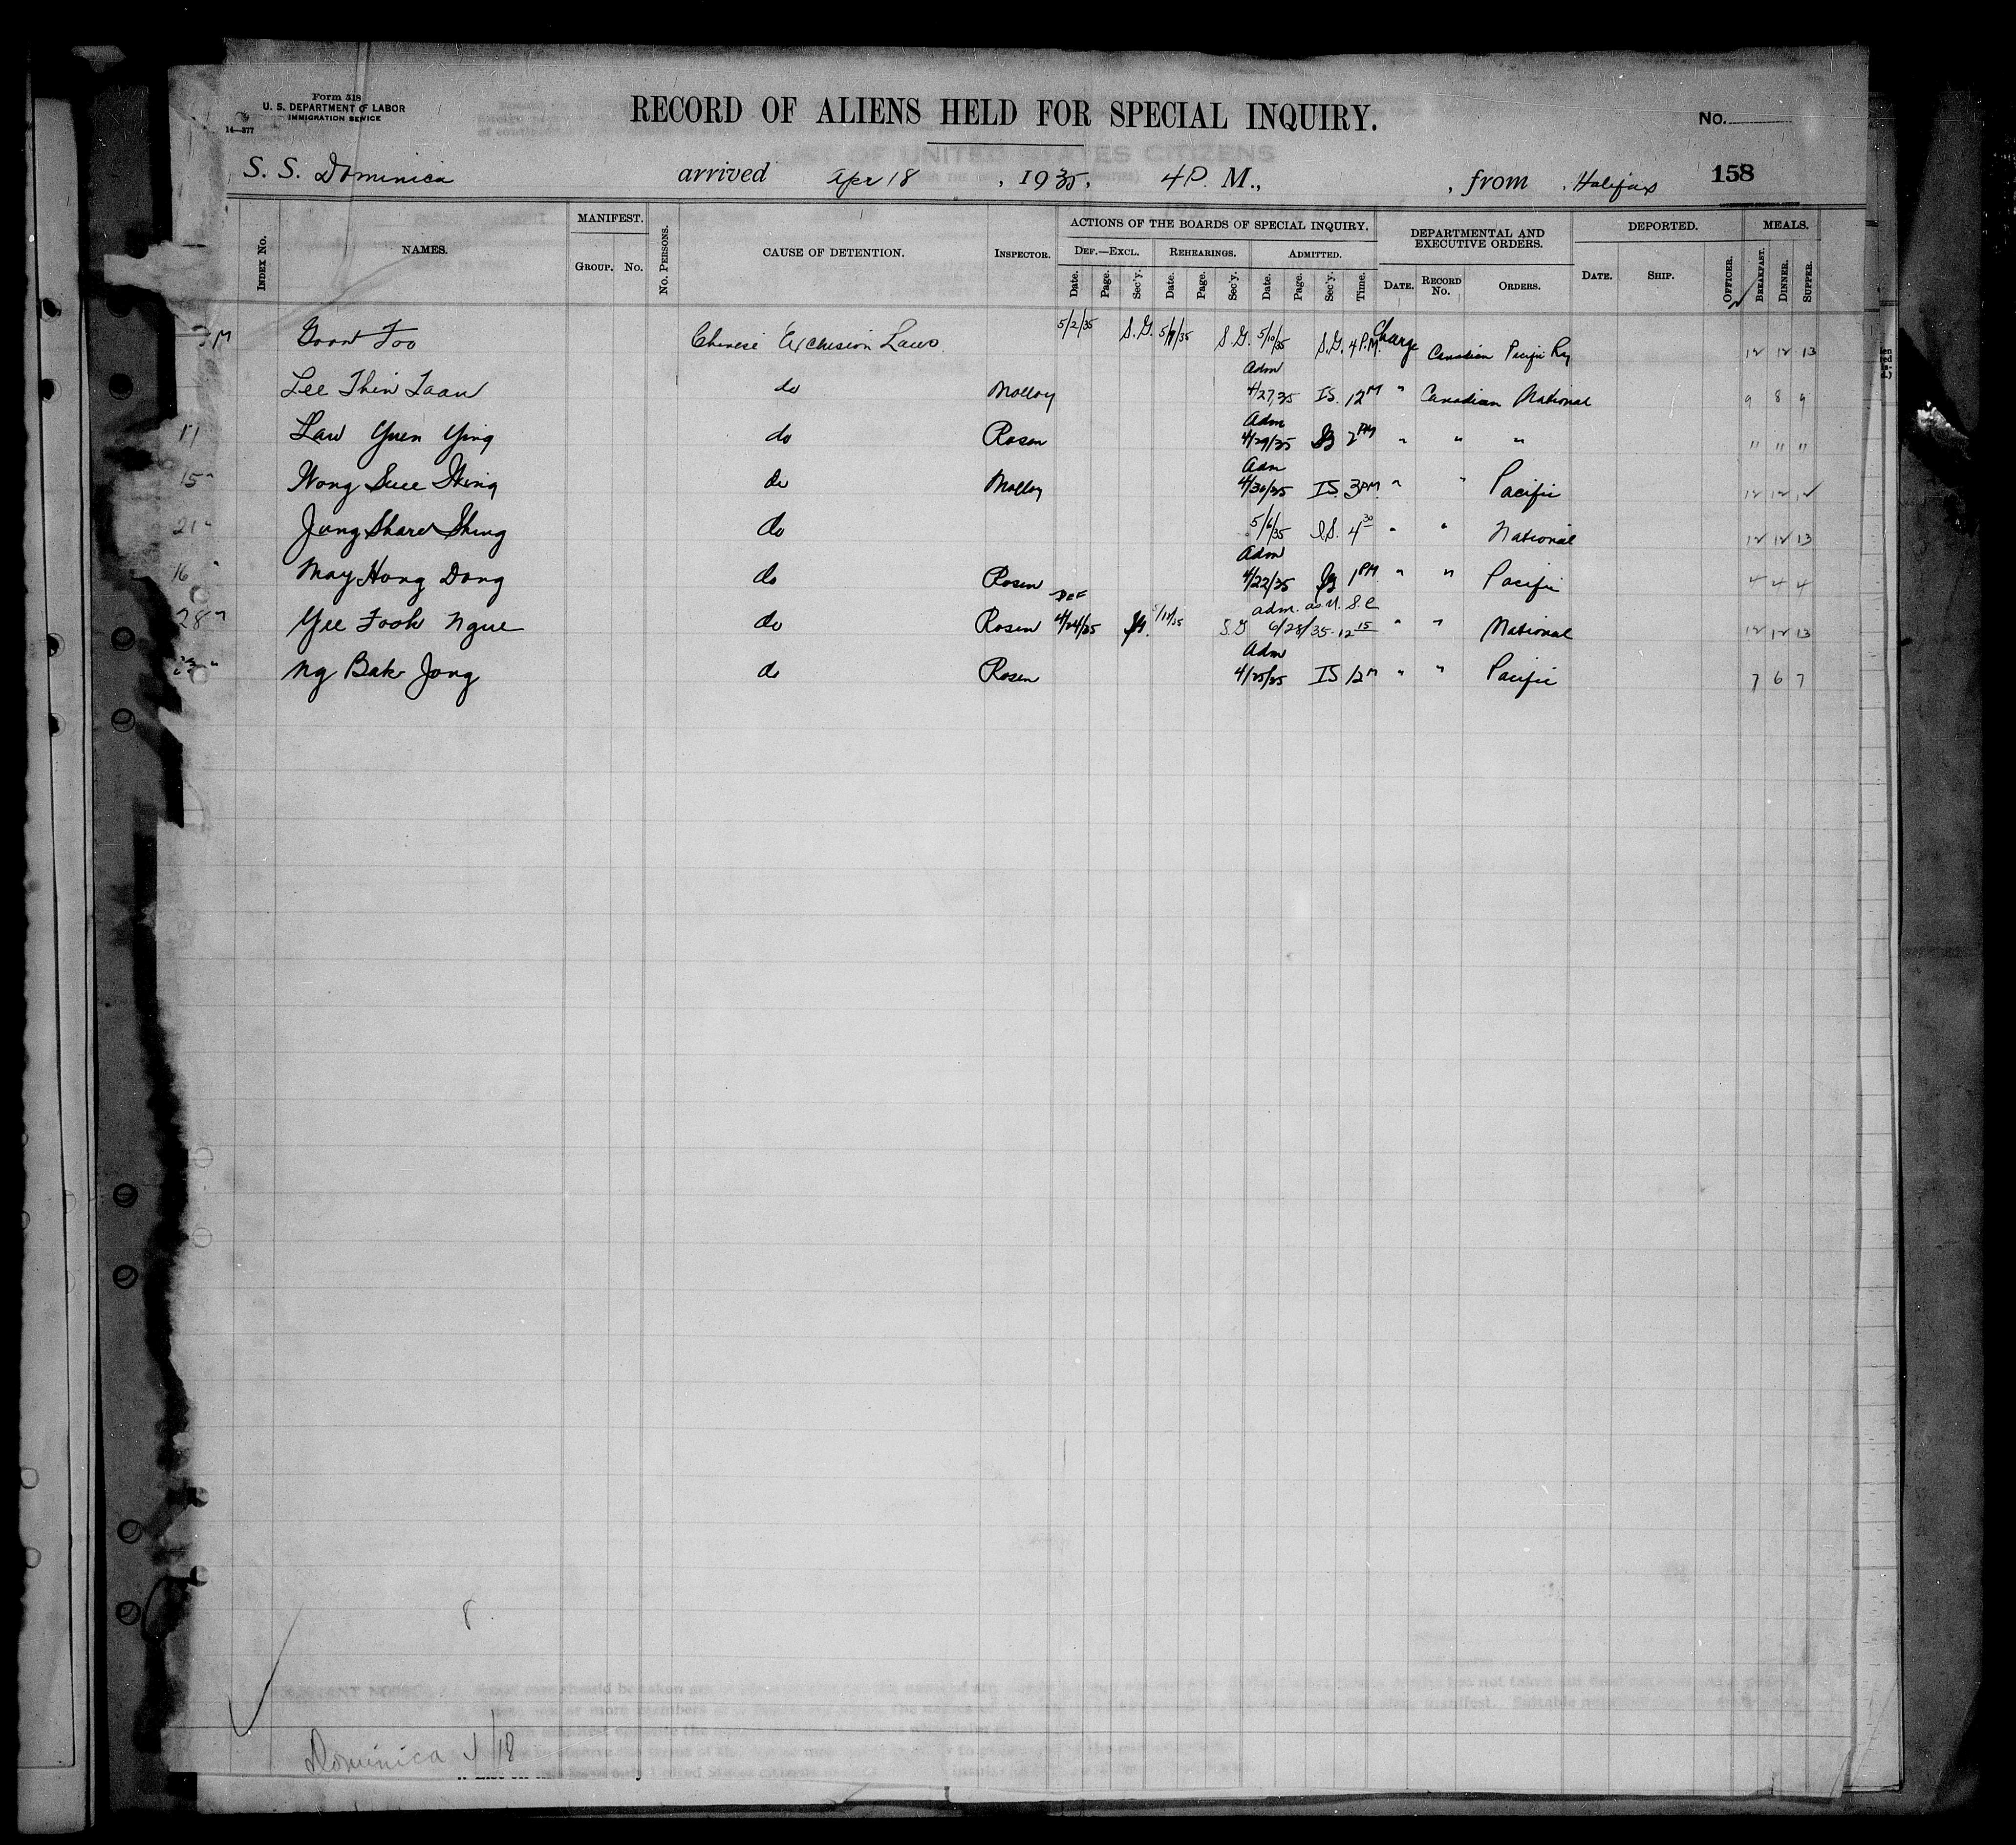 Form 518
U. S. DEPARTMENT OF LABOR
IMMIGRATION SERVICE
14—377
RECORD OF ALIENS HELD FOR SPECIAL INQUIRY.
No.
S. S. Dominica arrived Apr 18, 1935, 4 P. M., , from Halifax 158
INDEX NO. NAMES. MANIFEST. GROUP. NO. NO. PERSONS. CAUSE OF DETENTION. INSPECTOR. ACTIONS OF THE BOARDS OF SPECIAL INQUIRY. DEF.—EXCL. Date. Page. Sec'y. REHEARINGS. Date. Page. Sec'y. ADMITTED. Date. Page. Sec'y. Time. DEPARTMENTAL AND EXECUTIVE ORDERS. DATE. RECORD NO. ORDERS. DEPORTED. DATE. SHIP. OFFICER. MEALS. BREAKFAST. DINNER. SUPPER.
Goon Foo Chinese Exclusion Laws 5/2/35 S.G. 5/9/35 S.G. 5/10/35 S.G. 4 P.M. Charge Canadian Pacific Ry 12 12 13
Adm
Lee Thin Taan do Molloy 4/27/35 IS. 12 M " Canadian National 9 8 9
Adm
17 Law Yuen Ying do Rosen 4/29/35 2 PM " " " " " "
Adm
15 " Wong Suee Thing do Molloy 4/30/35 IS. 3 PM " " Pacific 12 12
21 " Jung Share Shing do 5/6/35 I.S. 4 30 " " National 12 12 13
Adm
16 " May Hong Dong do Rosen 4/22/35 1 PM " " Pacific 4 4 4
DEF adm. as U. S. C
28 " Yee Fook Ngue do Rosen 4/24/35 S.G 6/28/35 12 15 " " National 12 12 13
Adm
Ng Bak Jong do Rosen 4/25/35 IS 12 M " " Pacific 7 6 7
8
Dominica 18